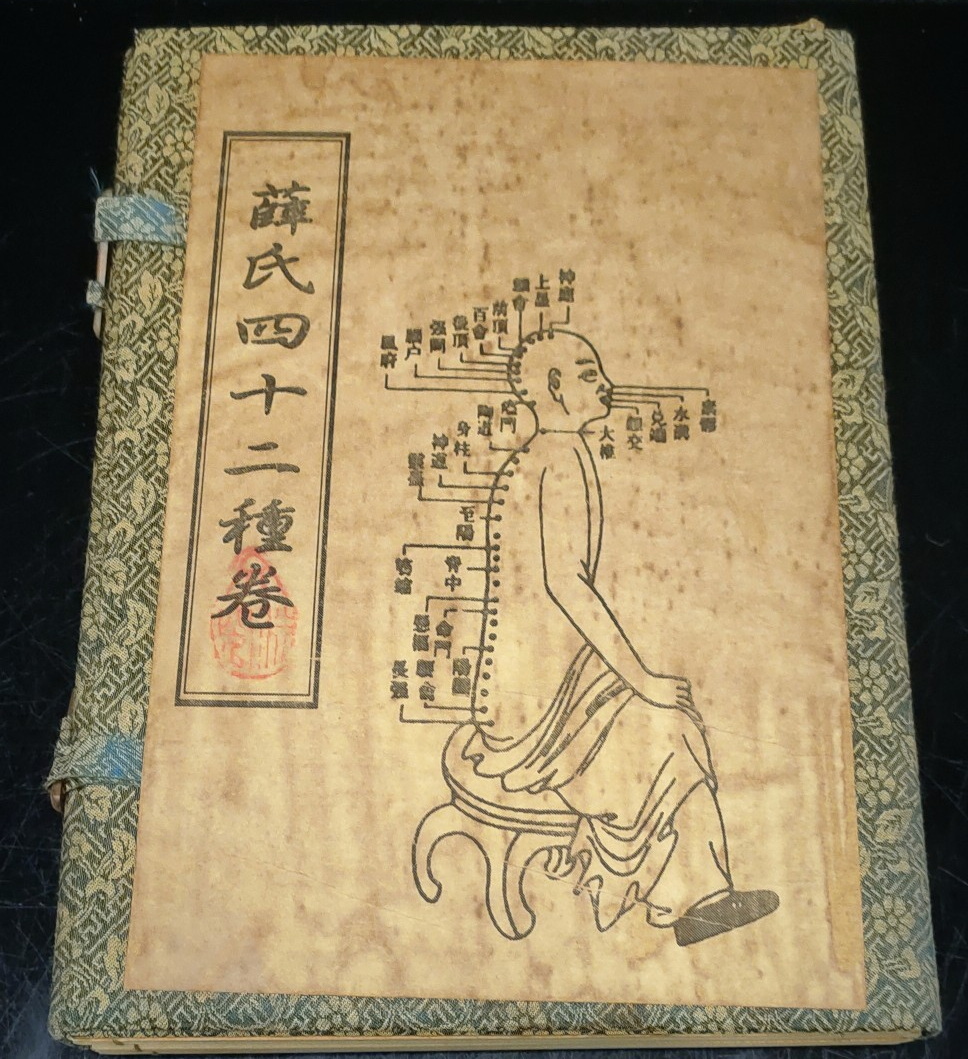 薛氏四十二種卷
神庭
上星
顖會
前頂
百會
後頂
强間
腦戶
風府
瘂門
陶道
身柱
神道
靈臺
至陽
筋縮
脊中
懸樞
命門
陽關
腰俞
長强
素髎
水溝
兌端
齦交
大椎